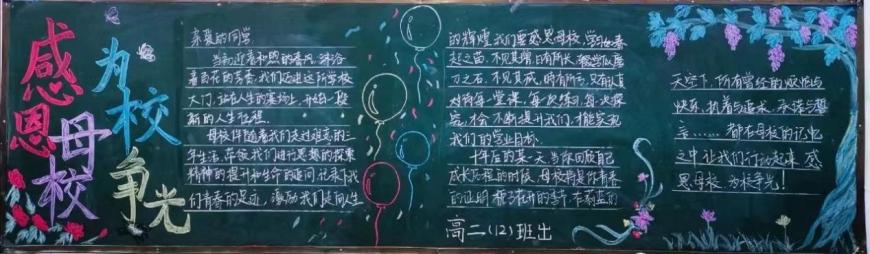 感恩母校
为校争光
亲爱的同学
当初迎着和煦的春风,沐浴
着百花的芳香,我们迈进这所学校
大门,让在人生的驿站上,开始一段
新的人生征程。
母校伴随着我们度过难忘的三
年生活,带领我们进行思想的探索
精神的提升和生命的追问,记录下我
们青春的足迹,激励我们走向人生
的辉煌,我们要感恩母校,学习如春
起之苗,不见其增,日有所长,辍学似磨
刀之石,不见其减,时有所亏,只有认真
对待每一堂课,每一次练习,每一次探
究,才会不断提升我们,才能实现
我们的学业目标。
十年后的某一天,当你回放自己
成长历程的时候,母校将是你青春
的证明,栀子花开的季节,在蔚蓝的
天空下,所有曾经的欢愉与
快乐,执着与追求,承诺与誓
言……都在母校的记忆
之中,让我们行动起来,感
恩母校,为校争光!
高二(12)班出